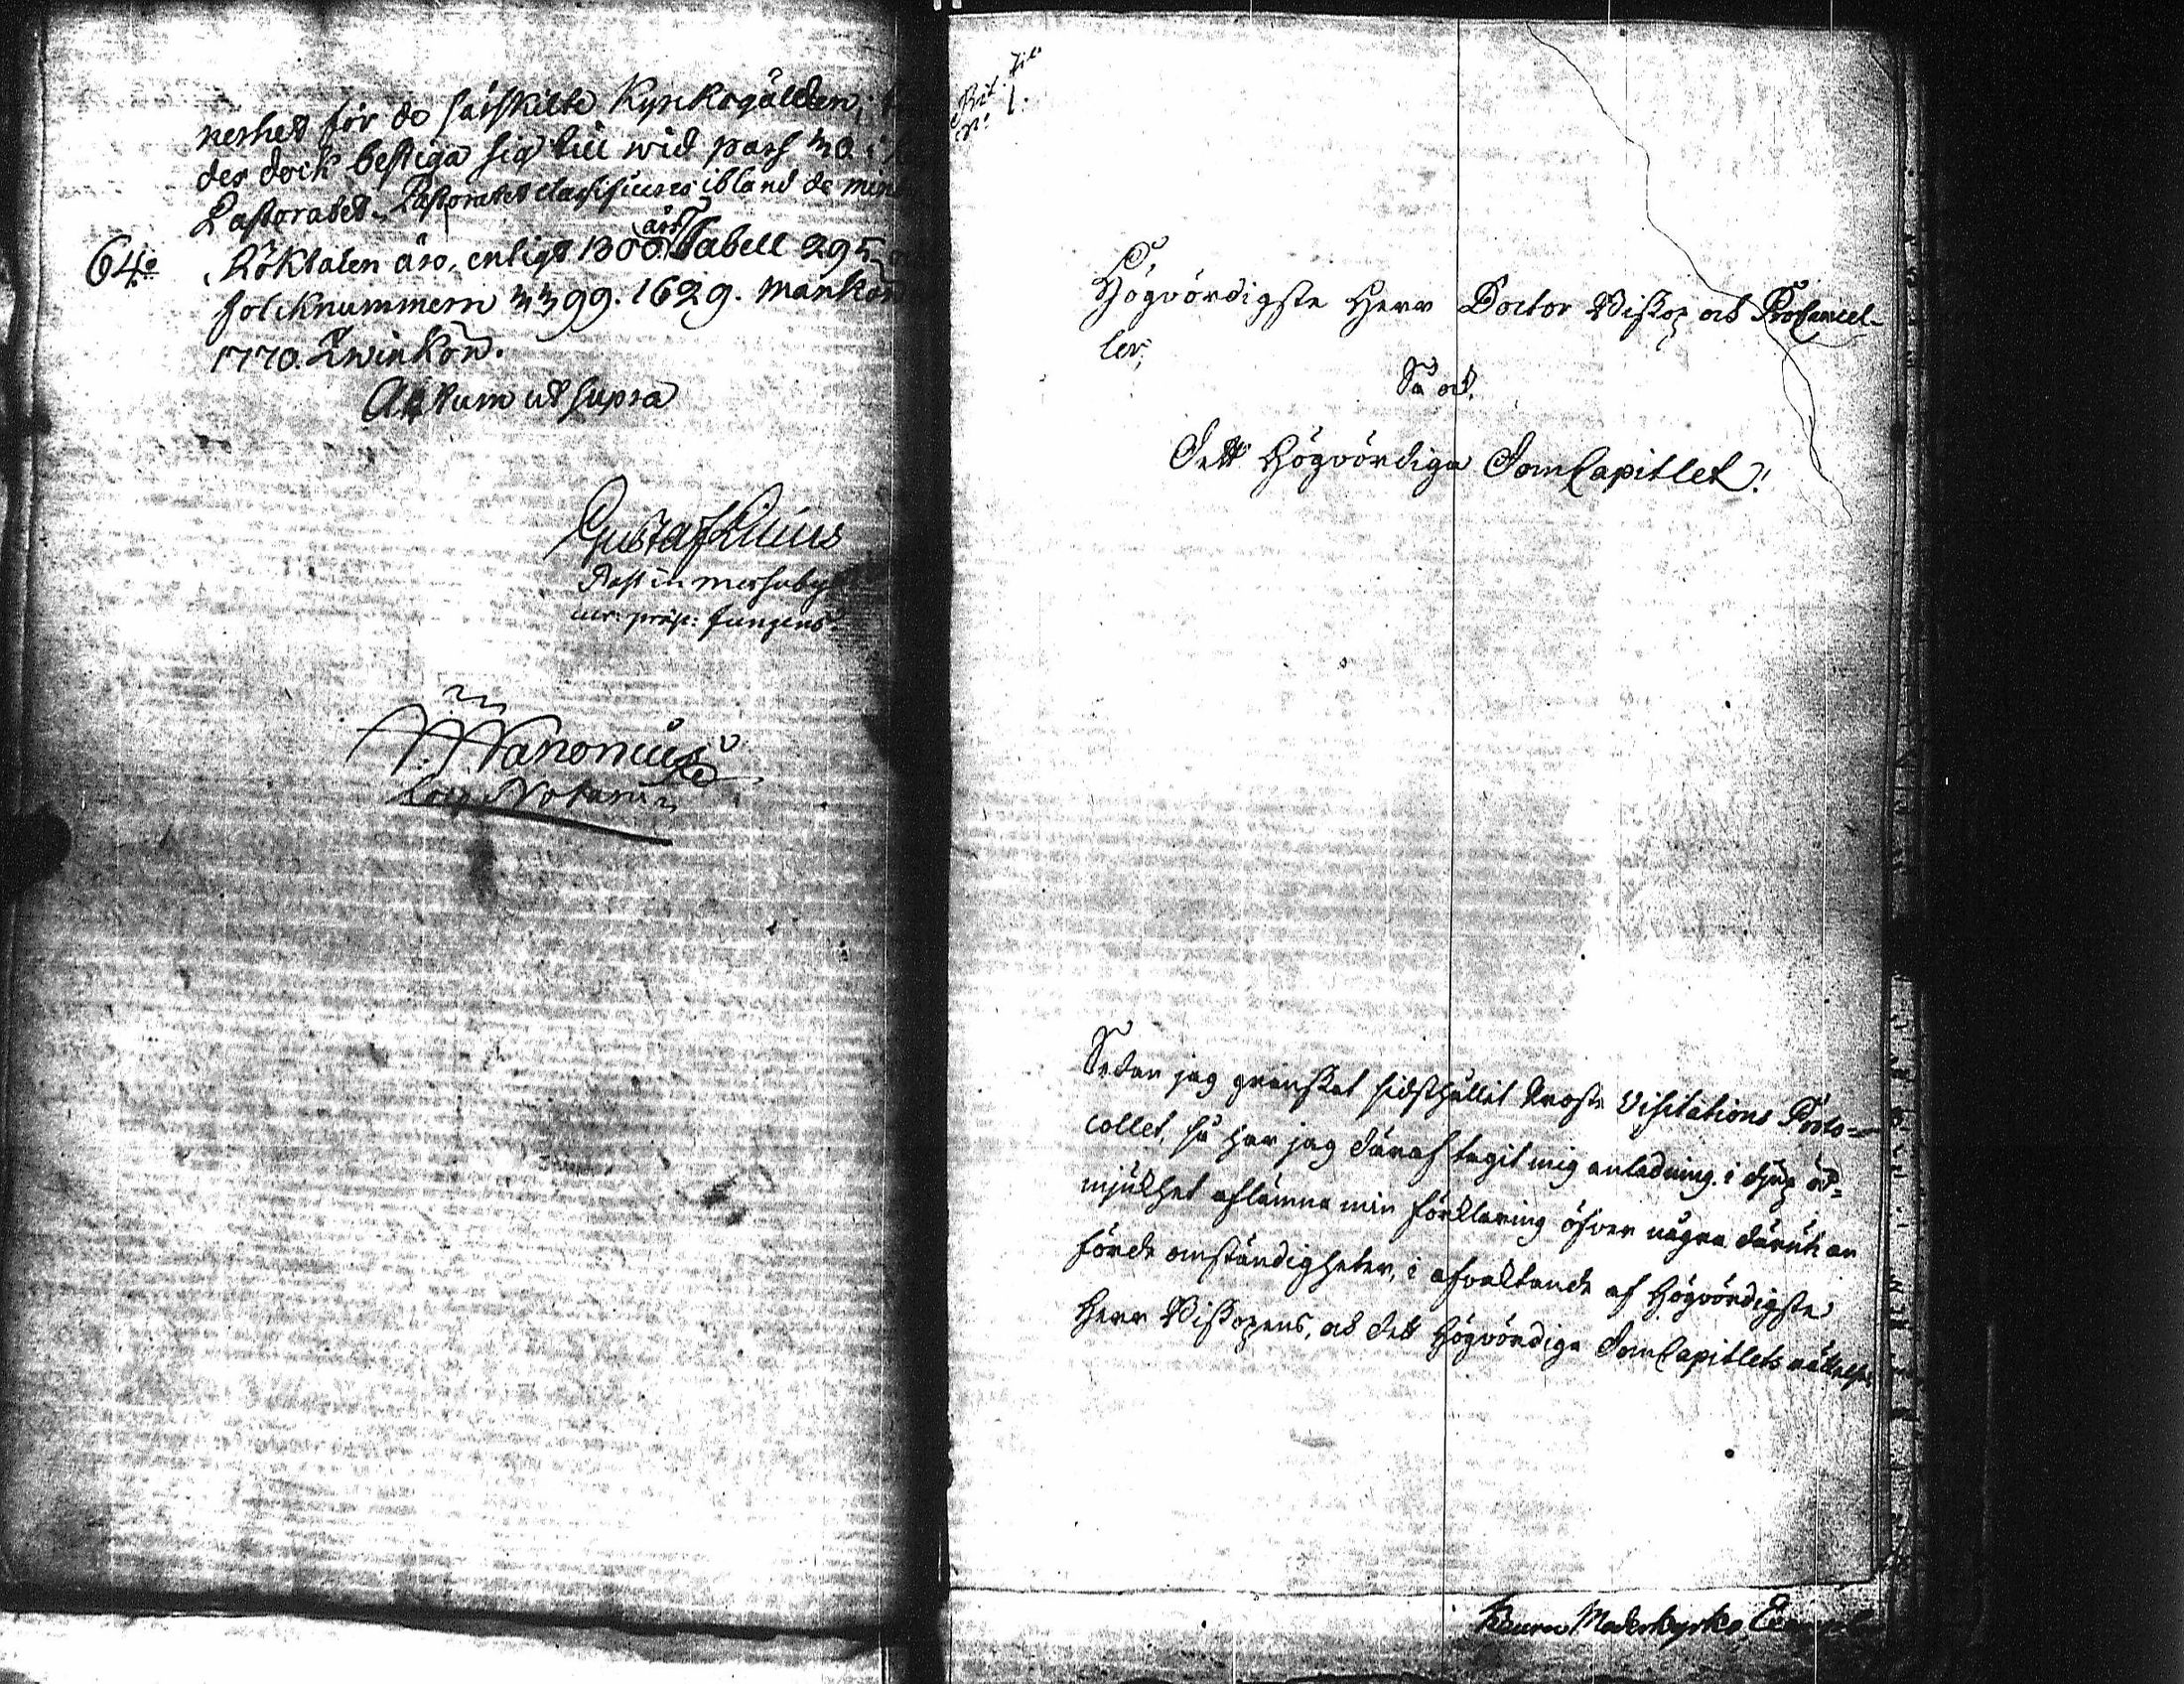 nerhet för de särskilte Kyrkogälden;
des dock bestiga sig till wid pass 30
Pastoratet. Pastoratet classificeres ibland de min
64o Röktalen äro, enligt 1800 års Tabell 295
folcknummern 3399. 1629. Mankön
1770. Qwinkön.
Actum ut supra
Gustaf
Past: in
cur: præp: fungens
Notarius
Bil. Litt
No 1.
Högvördigste Herr Doctor Biskop och ProCancel-
ler,
Så ock
Dett Högvördiga DomCapitlet!
Sedan jag granskat sidsthållit Prosts Visitations Proto-
collet, så har jag däraf tagit mig anledning i djup öd-
mjukhet aflämna min förklaring öfver några däruti an
förde omständigheter, i afvaktande af Högvördigste
Herr Biskopens, och dett Högvördiga DomCapitlets rättelse.
Moderkyrko